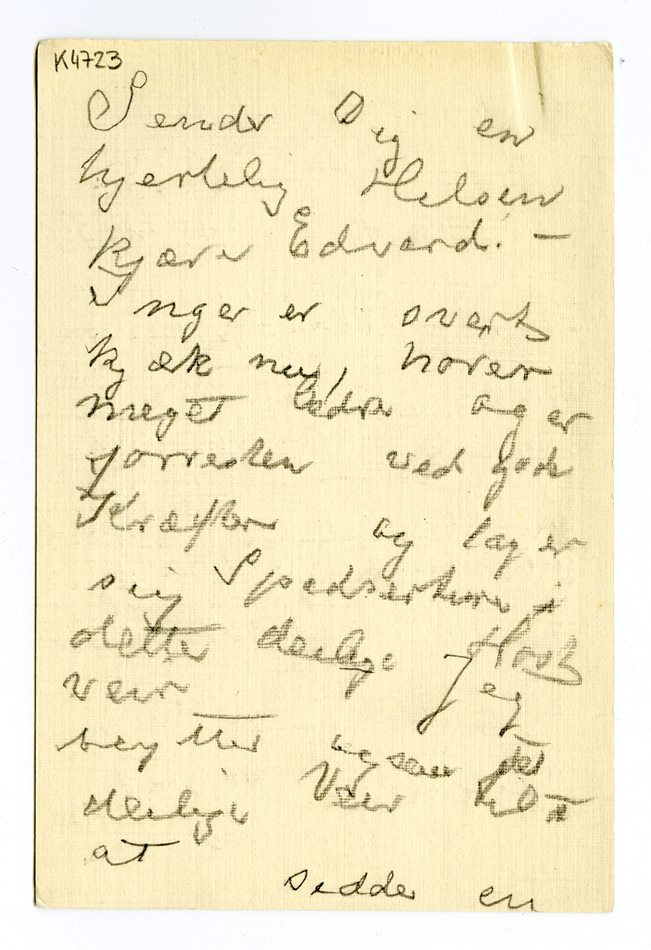 K4723
Sender Dig en
hjertelig Helsen
kjære Edvard. —
Inger er svært
kjæk nu, hoven
meget bedre og er
forresten ved gode
Kræfter og tager
sig Spadserture i
dette deilige Høst
veir Jeg
benytter ogsaa det
deilige Veir til
at
sidde en